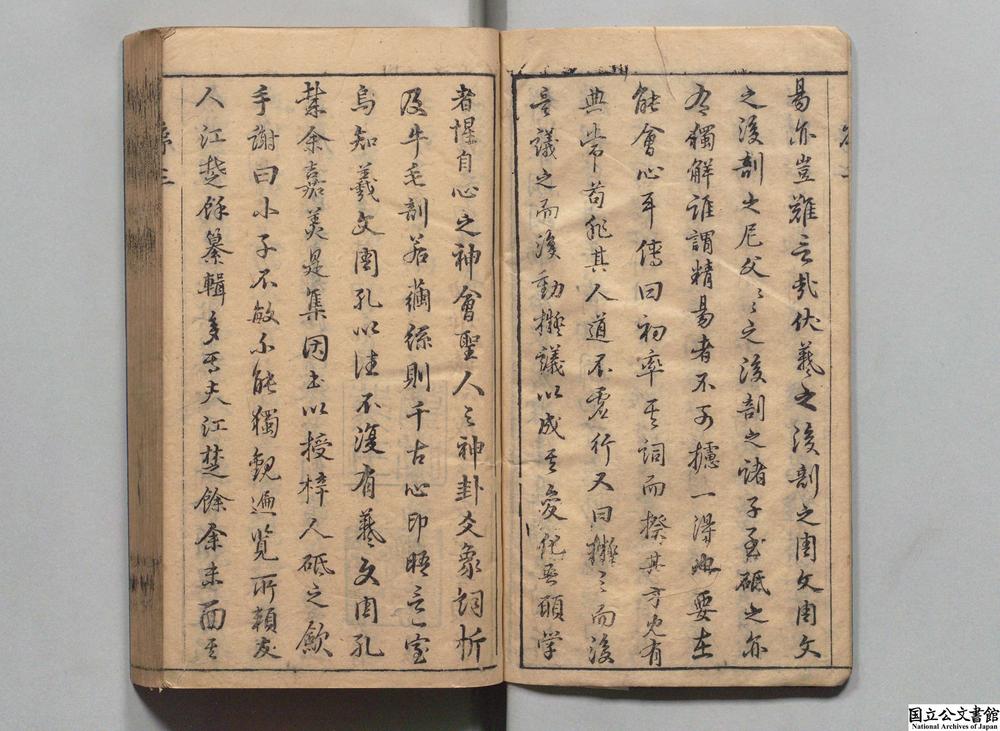 易亦豈難言哉伏羲之後剖之周文周文
之後剖之尼父〻之後剖之諸子至砥之亦
有獨解誰謂精易者不可攄一得也要在
能會心耳傳曰初率其詞而揆其方既有
典常苟非其人道不虛行又曰擬之而後
言議之而後動擬議以成其變化吾願学
者惺自心之神會聖人之神卦爻象詞析
及牛毛剖若繭絲則千古心印晤言一室
烏知羲文周孔以往不復有羲文周孔
業余嘉美是集因出以授梓人砥之歛
手謝曰小子不敏不能獨覩遍覽所賴友
人江楚餘纂輯多焉夫江楚餘余未面其
序三
国立公文書館
National Archives of Japan